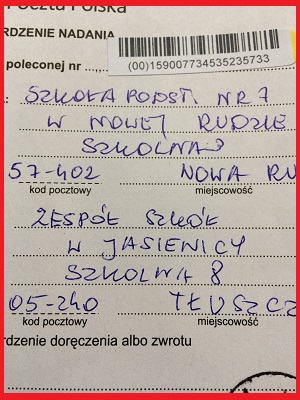 Poczta Polska
RDZENIE NADANIA
poleconej nr
(00)159007734535235733
SZKOŁA PODST. NR 7
W NOWEJ RUDZIE
SZKOLNA
57-402 NOWA RU
kod pocztowy miejscowość
ZESPÓŁ SZKÓŁ
W JASIENICY
SZKOLNA 8
05-240 TŁUSZCZ
kod pocztowy miejscowość
rdzenie doręczenia albo zwrotu